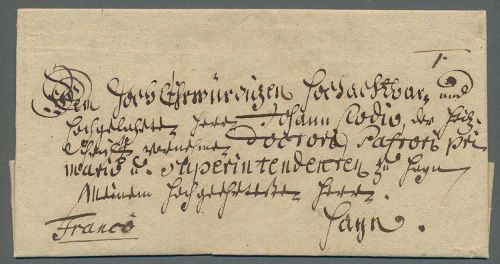 Dem HochEhrwürdigen Hochachtbar und
Hochgelahrten Herrn Johann Clodio, der Heil.
Schrifft vornehmen Doctori, Pastori Pri
mario u. Superintendenten zu Hayn
Meinem Hochgeehrtesten Herrn.
Franco Hayn.